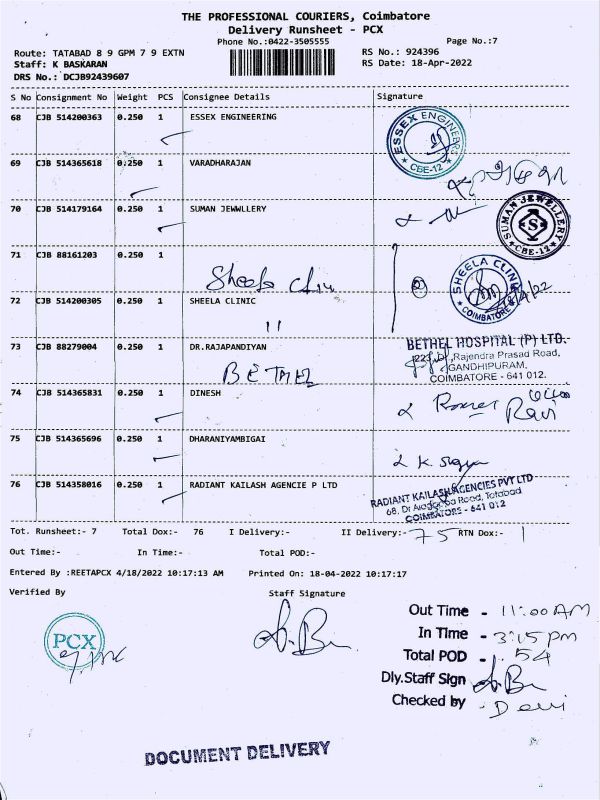 THE PROFESSIONAL COURIERS, Coimbatore
Delivery Runsheet - PCX
Phone No.:0422-3505555 Page No.:7
Route: TATABAD 8 9 GPM 7 9 EXTN RS No.: 924396
Staff: K BASKARAN RS Date: 18-Apr-2022
DRS No.: DCJB92439607
S No Consignment No Weight PCS Consignee Details Signature
68 CJB 514200363 0.250 1 ESSEX ENGINEERING
ESSEX ENGINEERS
CBE-12
69 CJB 514365618 0.250 1 VARADHARAJAN
70 CJB 514179164 0.250 1 SUMAN JEWWLLERY
SUMAN JEWELLERY
CBE-12
71 CJB 88161203 0.250 1
Sheela Clinic
SHEELA CLINIC
COIMBATORE
72 CJB 514200305 0.250 1 SHEELA CLINIC
11
73 CJB 88279004 0.250 1 DR.RAJAPANDIYAN
BETHEL
BETHEL HOSPITAL (P) LTD.
Rajendra Prasad Road,
GANDHIPURAM,
COIMBATORE - 641 012.
74 CJB 514365831 0.250 1 DINESH
Ravi
75 CJB 514365696 0.250 1 DHARANIYAMBIGAI
76 CJB 514358016 0.250 1 RADIANT KAILASH AGENCIE P LTD
RADIANT KAILASH AGENCIES PVT LTD
68, Dr Road, Tatabad
COIMBATORE - 641 012
Tot. Runsheet:- 7 Total Dox:- 76 I Delivery:- II Delivery:- 75 RTN Dox:- 1
Out Time:- In Time:- Total POD:-
Entered By :REETAPCX 4/18/2022 10:17:13 AM Printed On: 18-04-2022 10:17:17
Verified By Staff Signature
PCX
Out Time - 11:00 AM
In Time - 3:15 PM
Total POD - 54
Dly.Staff Sign
Checked by - Devi
DOCUMENT DELIVERY